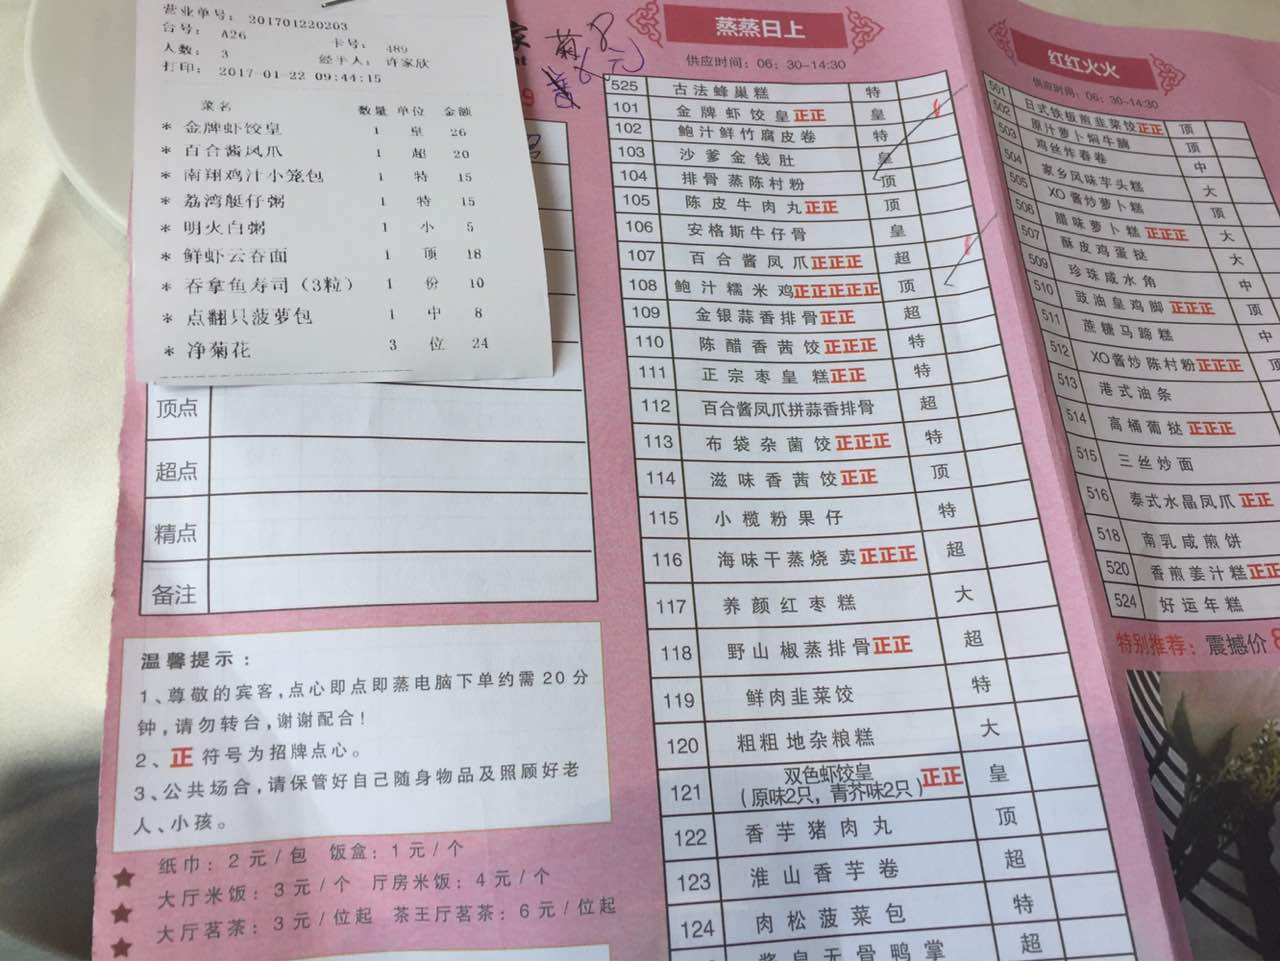 营业单号: 201701220203
台号: A26 卡号: 489
人数: 3 经手人: 许家欣
打印: 2017-01-22 09:44:15
菜名 数量 单位 金额
* 金牌虾饺皇 1 皇 26
* 百合酱凤爪 1 超 20
* 南翔鸡汁小笼包 1 特 15
* 荔湾艇仔粥 1 特 15
* 明火白粥 1 小 5
* 鲜虾云吞面 1 顶 18
* 吞拿鱼寿司(3粒) 1 份 10
* 点翻只菠萝包 1 中 8
* 净菊花 3 位 24
家
菊 8
6元
顶点
超点
精点
备注
温馨提示:
1、尊敬的宾客,点心即点即蒸电脑下单约需20分
钟,请勿转台,谢谢配合!
2、正 符号为招牌点心。
3、公共场合,请保管好自己随身物品及照顾好老
人、小孩。
纸巾: 2元/包 饭盒: 1元/个
大厅米饭: 3元/个 厅房米饭: 4元/个
大厅茗茶: 3元/位起 茶王厅茗茶: 6元/位起
蒸蒸日上
供应时间: 06: 30-14:30
525 古法蜂巢糕 特
101 金牌虾饺皇正正 皇
102 鲍汁鲜竹腐皮卷 特
103 沙爹金钱肚 皇
104 排骨蒸陈村粉 顶
105 陈皮牛肉丸正正 顶
106 安格斯牛仔骨 皇
107 百合酱凤爪正正正 超
108 鲍汁糯米鸡正正正正正 顶
109 金银蒜香排骨正正 超
110 陈醋香茜饺正正正 特
111 正宗枣皇糕正正 特
112 百合酱凤爪拼蒜香排骨 超
113 布袋杂菌饺正正正 特
114 滋味香茜饺正正 顶
115 小榄粉果仔 特
116 海味干蒸烧卖正正正 超
117 养颜红枣糕 大
118 野山椒蒸排骨正正 超
119 鲜肉韭菜饺 特
120 粗粗地杂粮糕 大
121 双色虾饺皇
(原味2只, 青芥味2只)正正 皇
122 香芋猪肉丸 顶
123 淮山香芋卷 超
124 肉松菠菜包 特
酱皇无骨鸭掌 超
红红火火
供应时间: 06: 30-14:30
501 日式铁板煎韭菜饺正正 顶
502 原汁萝卜焖牛腩 顶
503 鸡丝炸春卷 中
504 家乡风味芋头糕 大
505 XO酱炒萝卜糕 顶
506 腊味萝卜糕正正正 大
507 酥皮鸡蛋挞 大
509 珍珠咸水角 中
510 豉油皇鸡脚正正正 顶
511 蔗糖马蹄糕 中
512 XO酱炒陈村粉正正正 顶
513 港式油条
514 高桶葡挞正正正
515 三丝炒面
516 泰式水晶凤爪正正
518 南乳咸煎饼
520 香煎姜汁糕正正
524 好运年糕
特别推荐: 震撼价 8